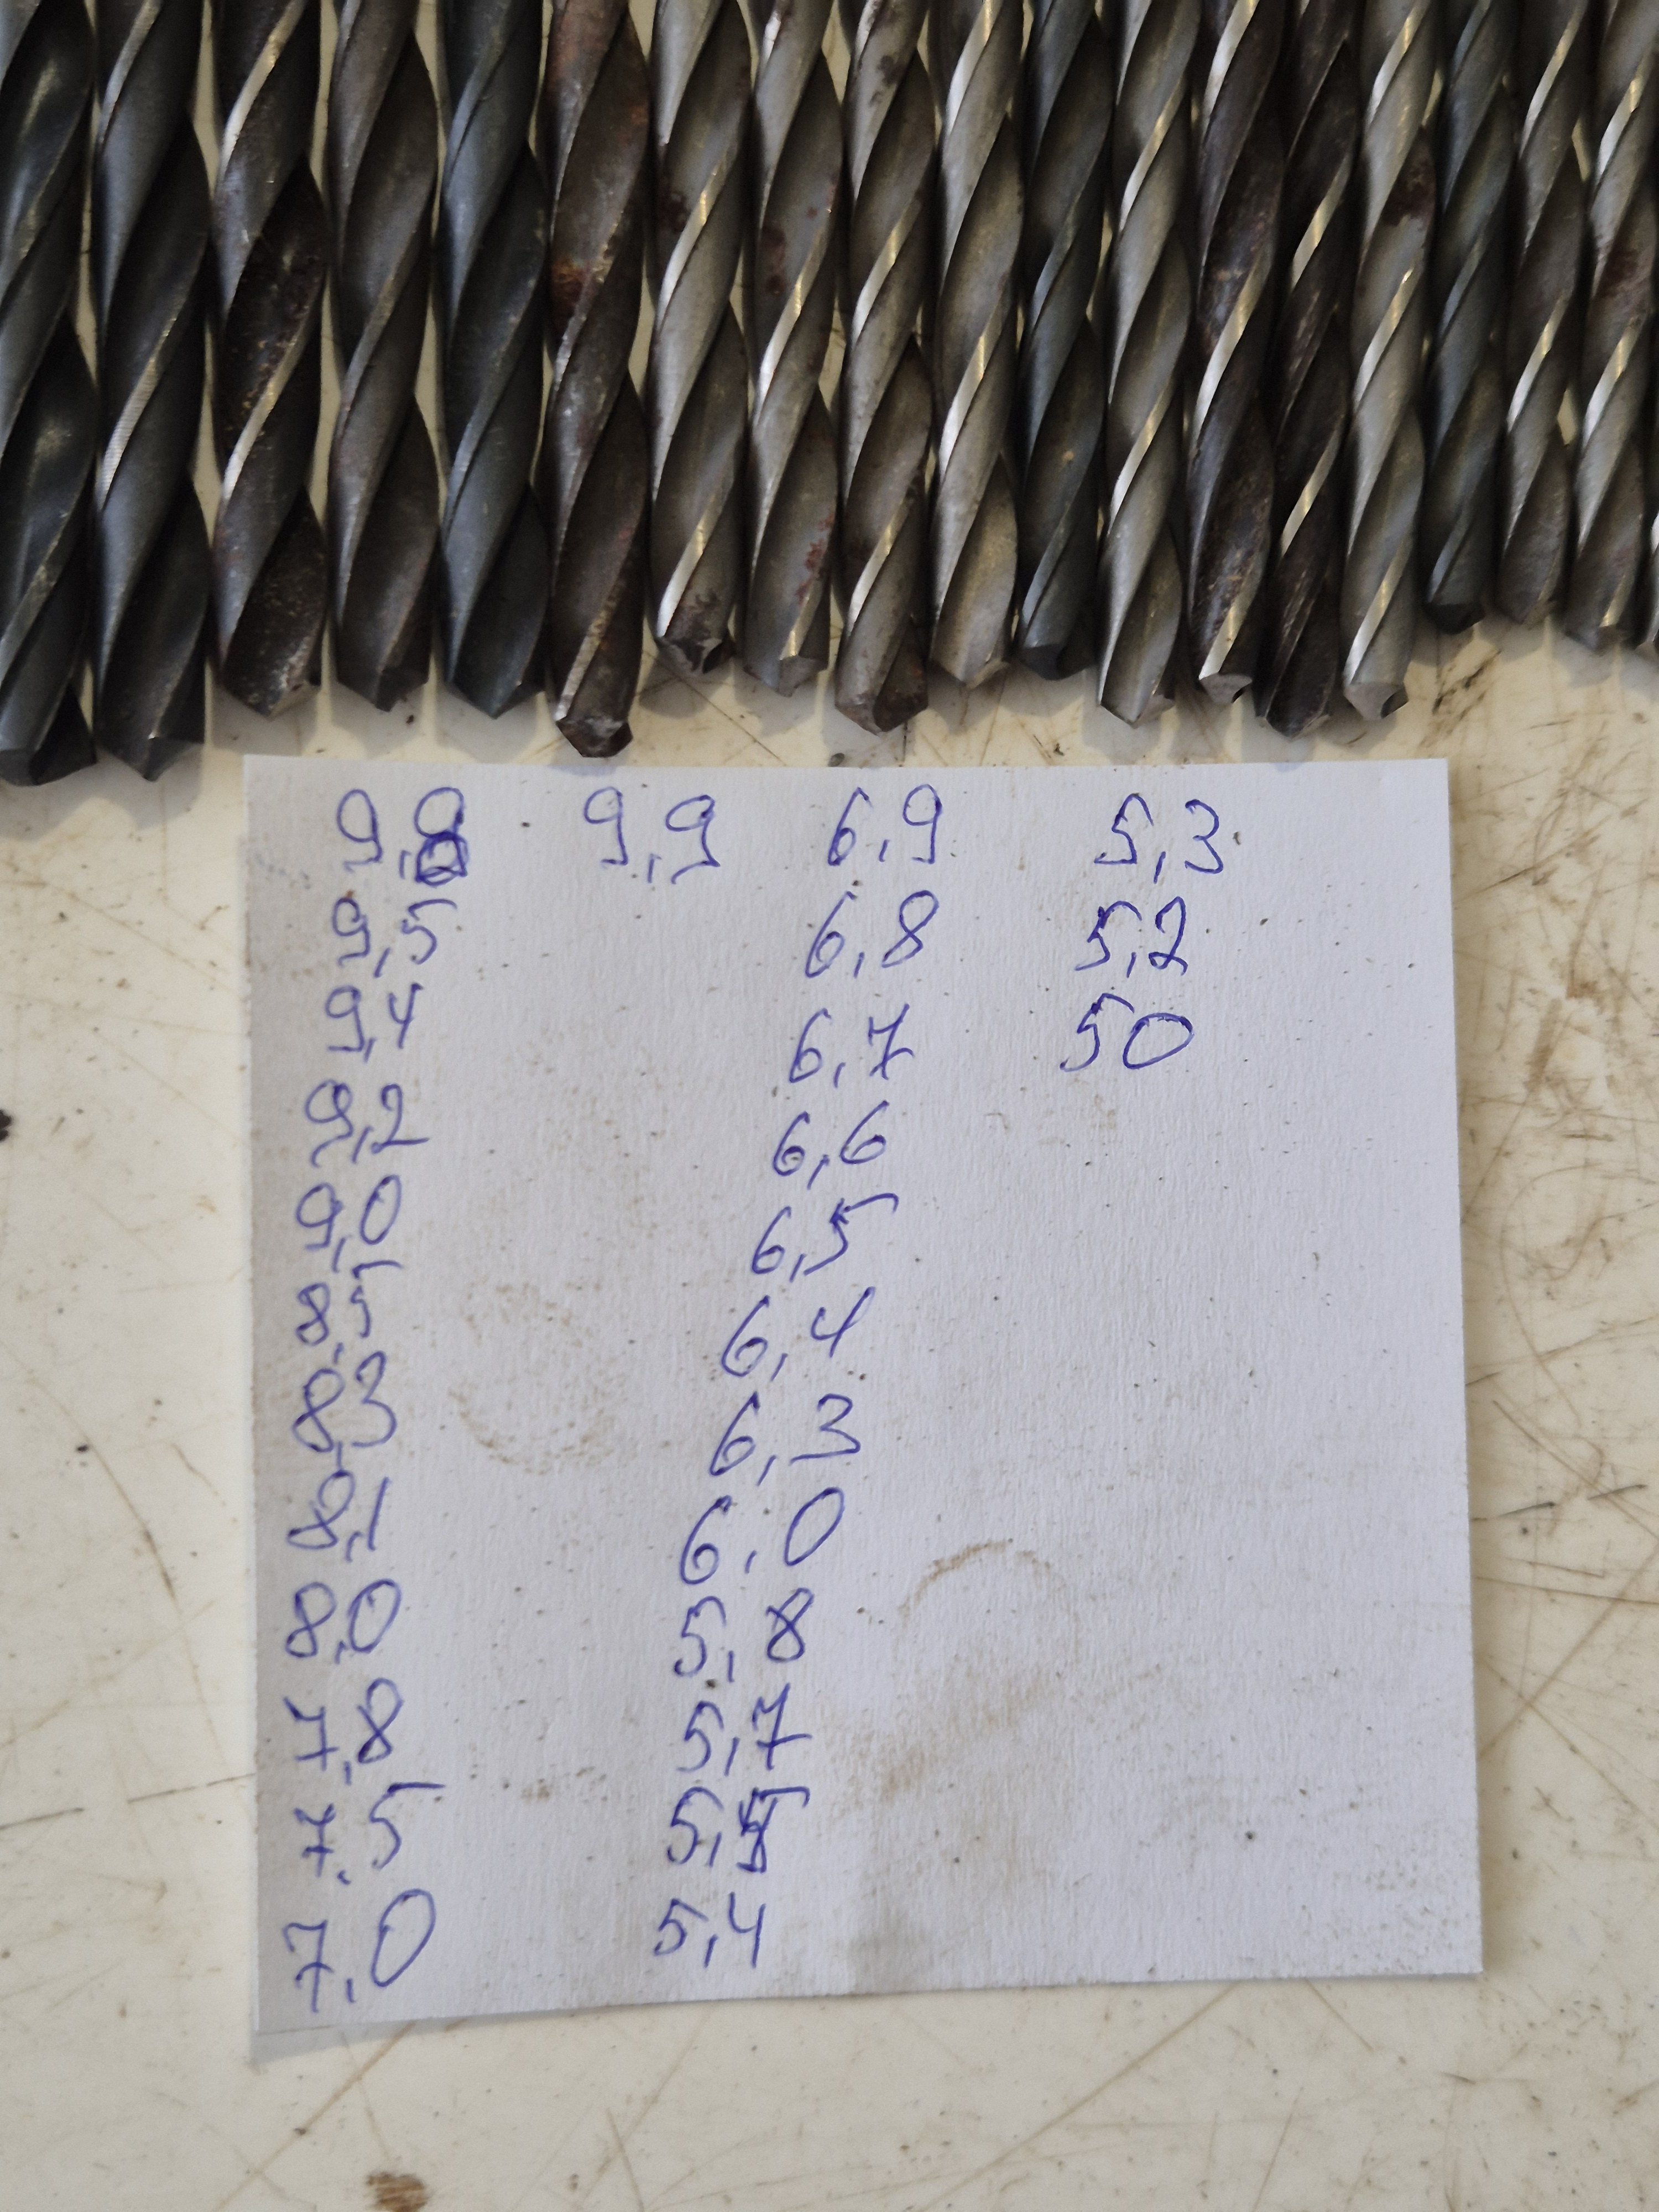 9,8 9,9 6,9 5,3
9,5 6,8 5,2
9,4 6,7 50
9,2 6,6
9,0 6,5
8,5 6,4
8,3 6,3
8,1 6,0
8,0 5,8
7,8 5,7
7,5 5,5
7,0 5,4